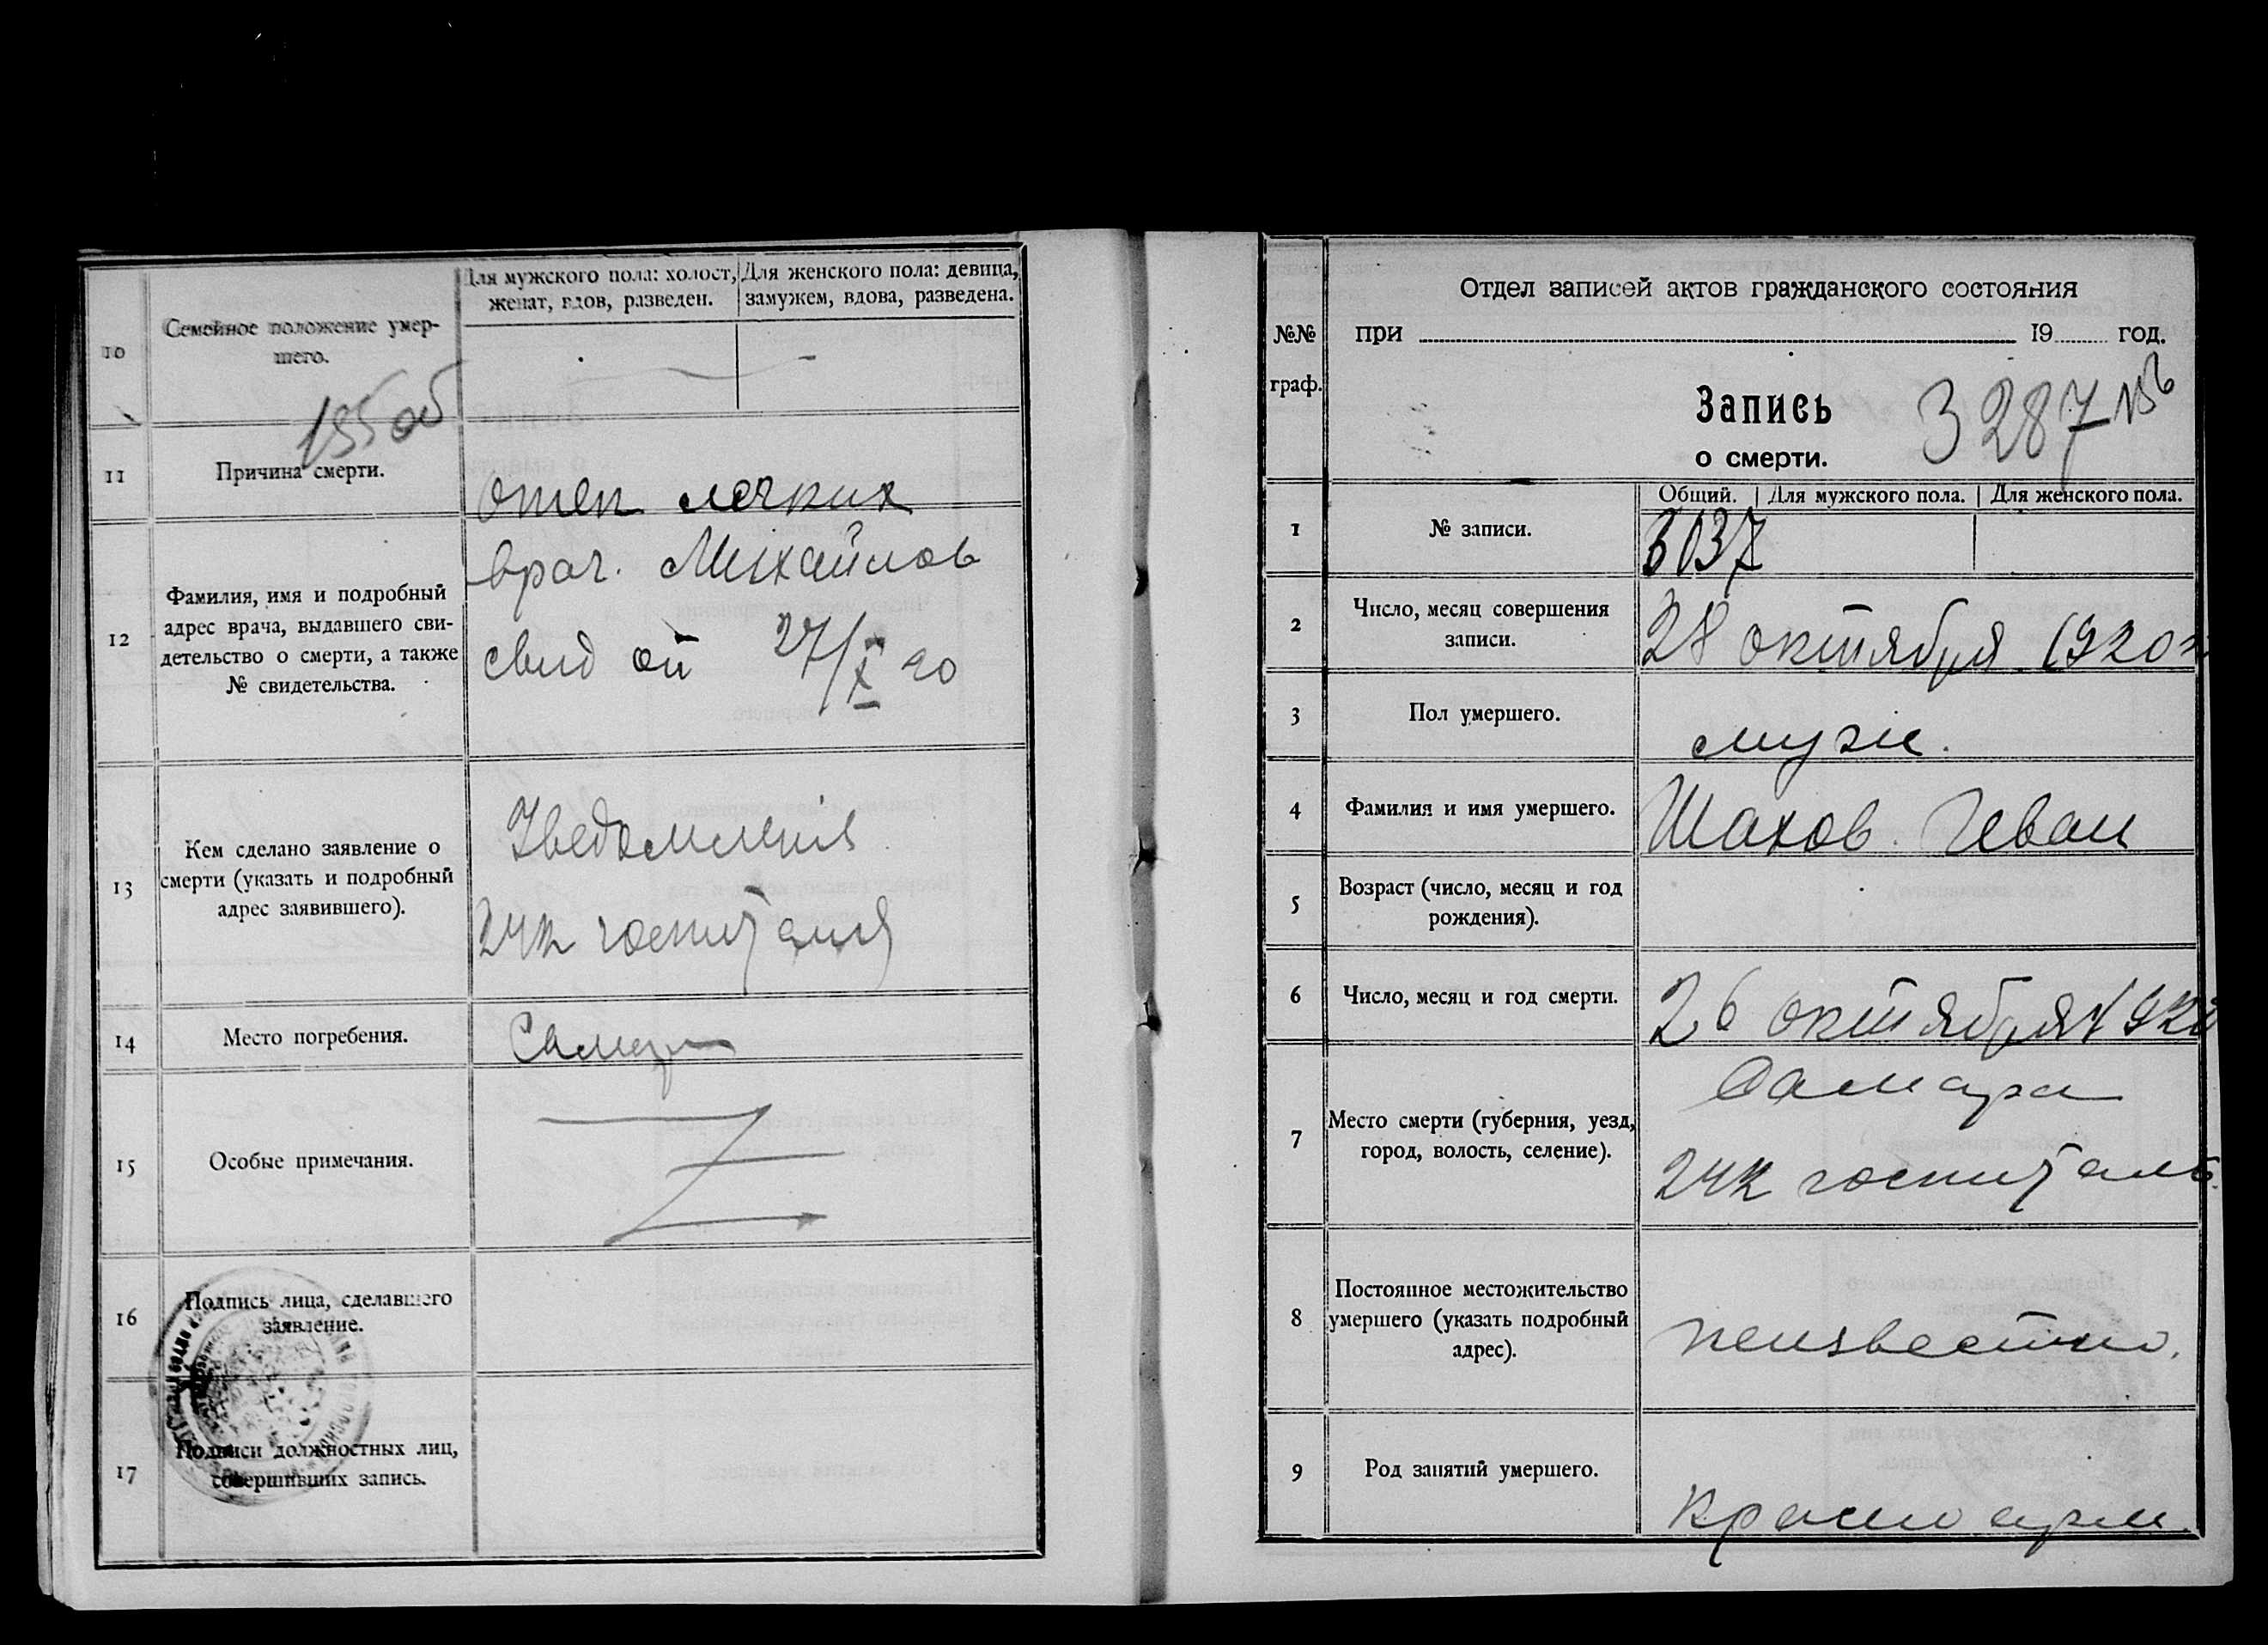 10
Семейное положение умер-
шего.
Для мужского пола: холост,
женат, вдов, разведен.
Для женского пола: девица,
замужем, вдова, разведена.
155 об
11
Причина смерти.
отек легких
12
Фамилия, имя и подробный
адрес врача, выдавшего сви-
детельство о смерти, а также
№ свидетельства.
врач. Михайлов
свид от 27/X 20
13
Кем сделано заявление о
смерти (указать и подробный
адрес заявившего).
Уведомления
госпиталя
14
Место погребения.
Самара
15
Особые примечания.
Z
16
Подпись лица, сделавшего
заявление.
17
Подписи должностных лиц,
совершивших запись.
№№
граф.
Отдел записей актов гражданского состояния
при 19 год.
Запись
о смерти.
3287
156
Общий. Для мужского пола. Для женского пола.
1
№ записи.
3037
2
Число, месяц совершения
записи.
28 октября 1920 г
3
Пол умершего.
муж.
4
Фамилия и имя умершего.
Шахов Иван
5
Возраст (число, месяц и год
рождения).
6
Число, месяц и год смерти.
26 октября 1920
7
Место смерти (губерния, уезд,
город, волость, селение).
Самара
госпиталь
8
Постоянное местожительство
умершего (указать подробный
адрес).
неизвестно.
9
Род занятий умершего.
Красноарм.